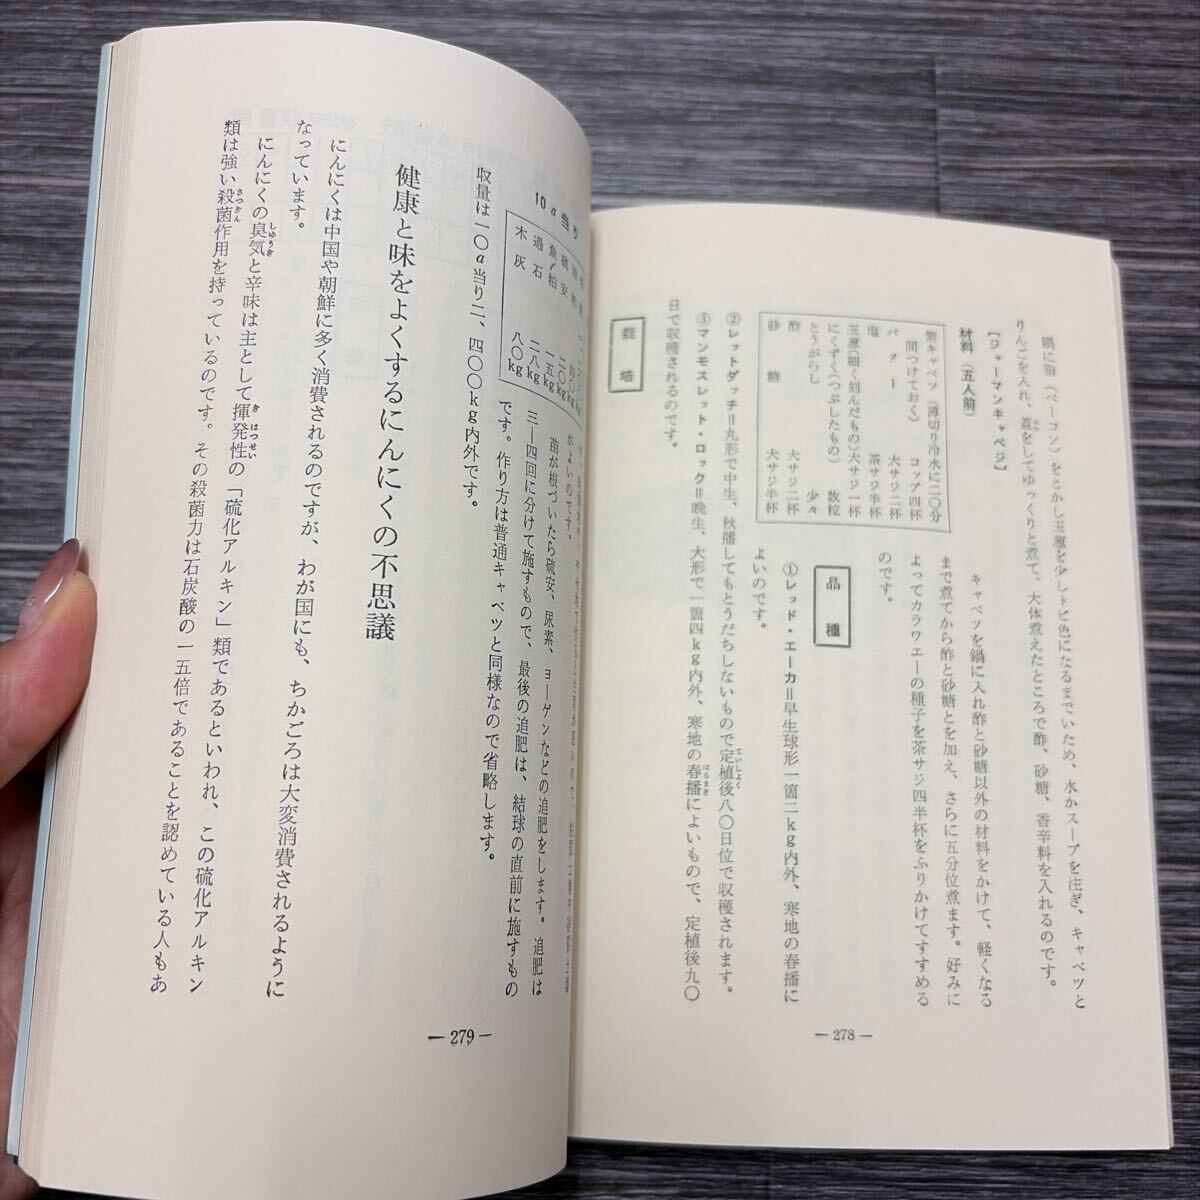 鍋に脂(ベーコン)をとかし玉葱を少しトビ色になるまでいため、水かスープを注ぎ、キャベツと
りんごを入れ、蓋をしてゆっくりと煮て、大体煮えたところで酢、砂糖、香辛料を入れるのです。
[ジャーマンキャベジ]
材料(五人前)
紫キャベツ(薄切り冷水に二〇分
間つけておく) コップ四杯
バター 大サジ二杯
塩 茶サジ半杯
玉葱(細く刻んだもの)大サジ一杯
にくずく(つぶしたもの) 数粒
とうがらし 少々
酢 大サジ二杯
砂糖 大サジ半杯
キャベツを鍋に入れ酢と砂糖以外の材料をかけて、軽くなる
まで煮てから酢と砂糖とを加え、さらに五分位煮ます。好みに
よってカラワエーの種子を茶サジ四半杯をふりかけてすすめる
のです。
品種
①レッド・エーカ=早生球形一箇二kg内外、寒地の春播に
よいのです。
②レットダッチ=丸形で中生、秋播してもとうだちしないもので定植後八〇日位で収穫されます。
③マンモスレット・ロック=晩生、大形で一箇四kg内外、寒地の春播によいもので、定植後九〇
日で収穫されるのです。
栽培
― 278 ―
10a当り
硫安 二〇kg
魚〆粕 一五kg
過石 二八kg
木灰 八〇kg
がよいのです。
苗が根づいたら硫安、尿素、ヨーゲンなどの追肥をします。追肥は
三―四回に分けて施すもので、最後の追肥は、結球の直前に施すもの
です。作り方は普通キャベツと同様なので省略します。
収量は一〇a当り二、四〇〇kg内外です。
健康と味をよくするにんにくの不思議
にんにくは中国や朝鮮に多く消費されるのですが、わが国にも、ちかごろは大変消費されるように
なっています。
にんにくの臭気と辛味は主として揮発性の「硫化アルキン」類であるといわれ、この硫化アルキン
類は強い殺菌作用を持っているのです。その殺菌力は石炭酸の一五倍であることを認めている人もあ
― 279 ―